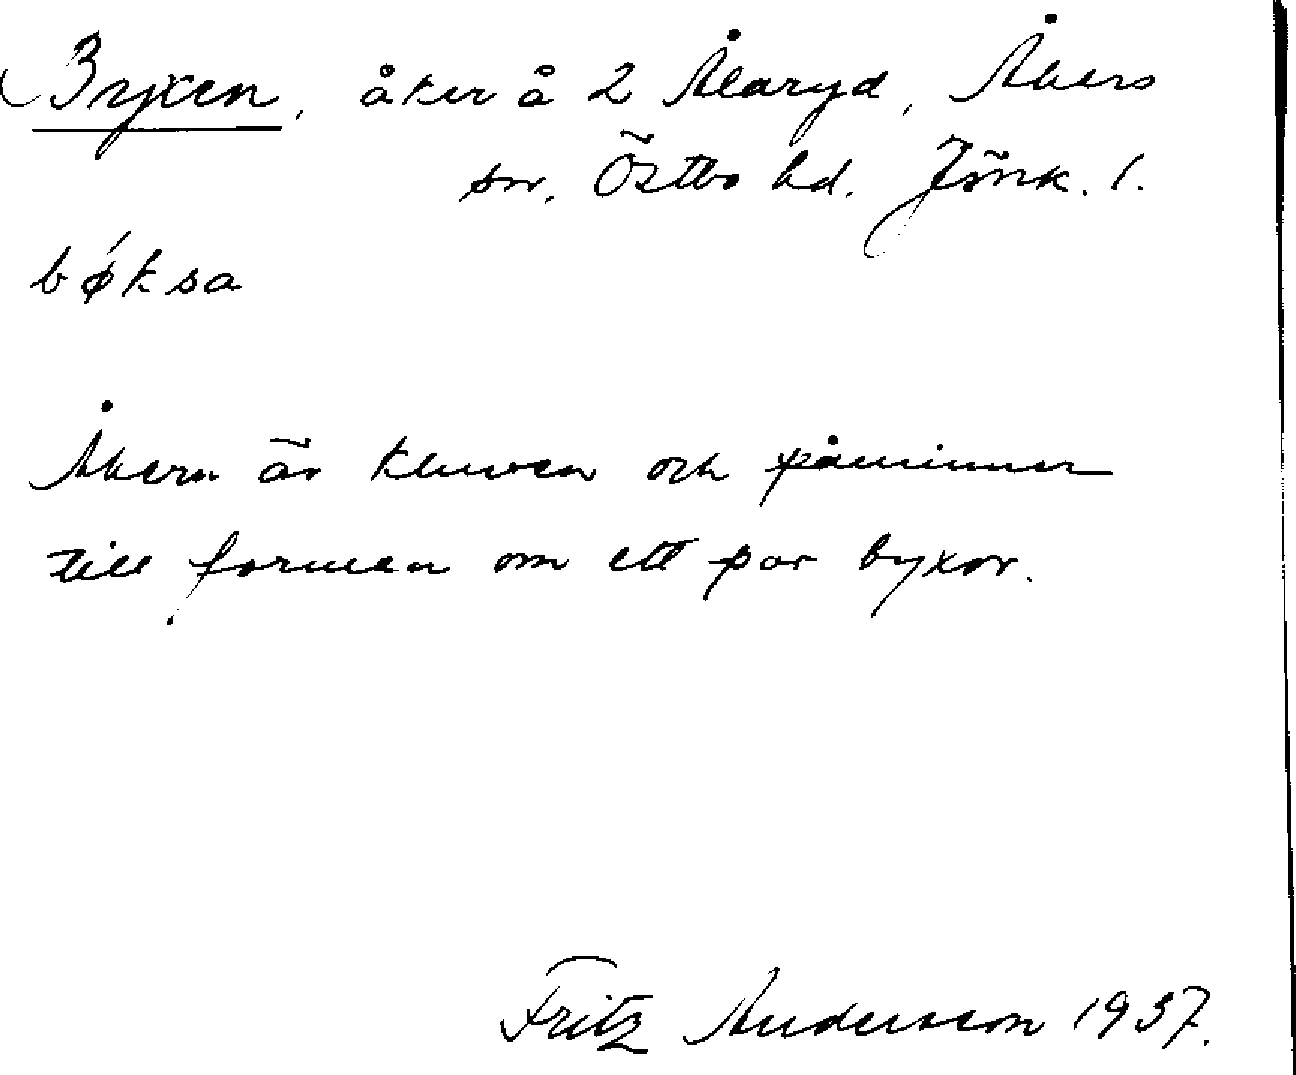 Byxen, åker å 2 Ålaryd, Åkers
sn, Östbo hd. Jönk. l.
bǿksa
Åkern är kluven och påminner
till formen om ett par byxor.
Fritz Andersson 1937.